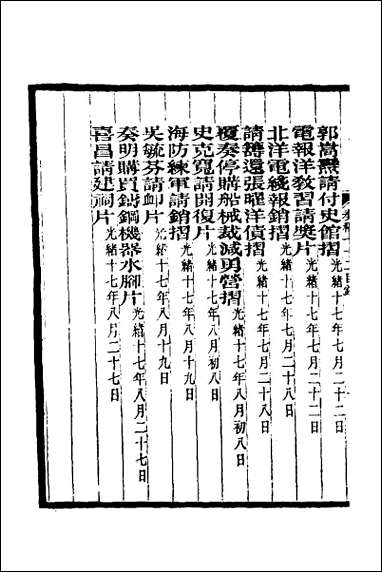 郭嵩燾請付史館摺光緒十七年七月二十二日
電報洋教習請奬片光緒十七年七月二十二日
北洋電綫報銷摺光緒十七年七月二十八日
請籌還張曜洋債摺光緒十七年七月二十八日
覆奏停購船械裁減勇營摺光緒十七年八月初八日
史克寬請開復片光緒十七年八月初八日
海防練軍請銷摺光緒十七年八月十九日
吳毓芬請卹片光緒十七年八月十九日
奏明購買鍊鋼機器水腳片光緒十七年八月二十七日
喜昌請建祠片光緒十七年八月二十七日